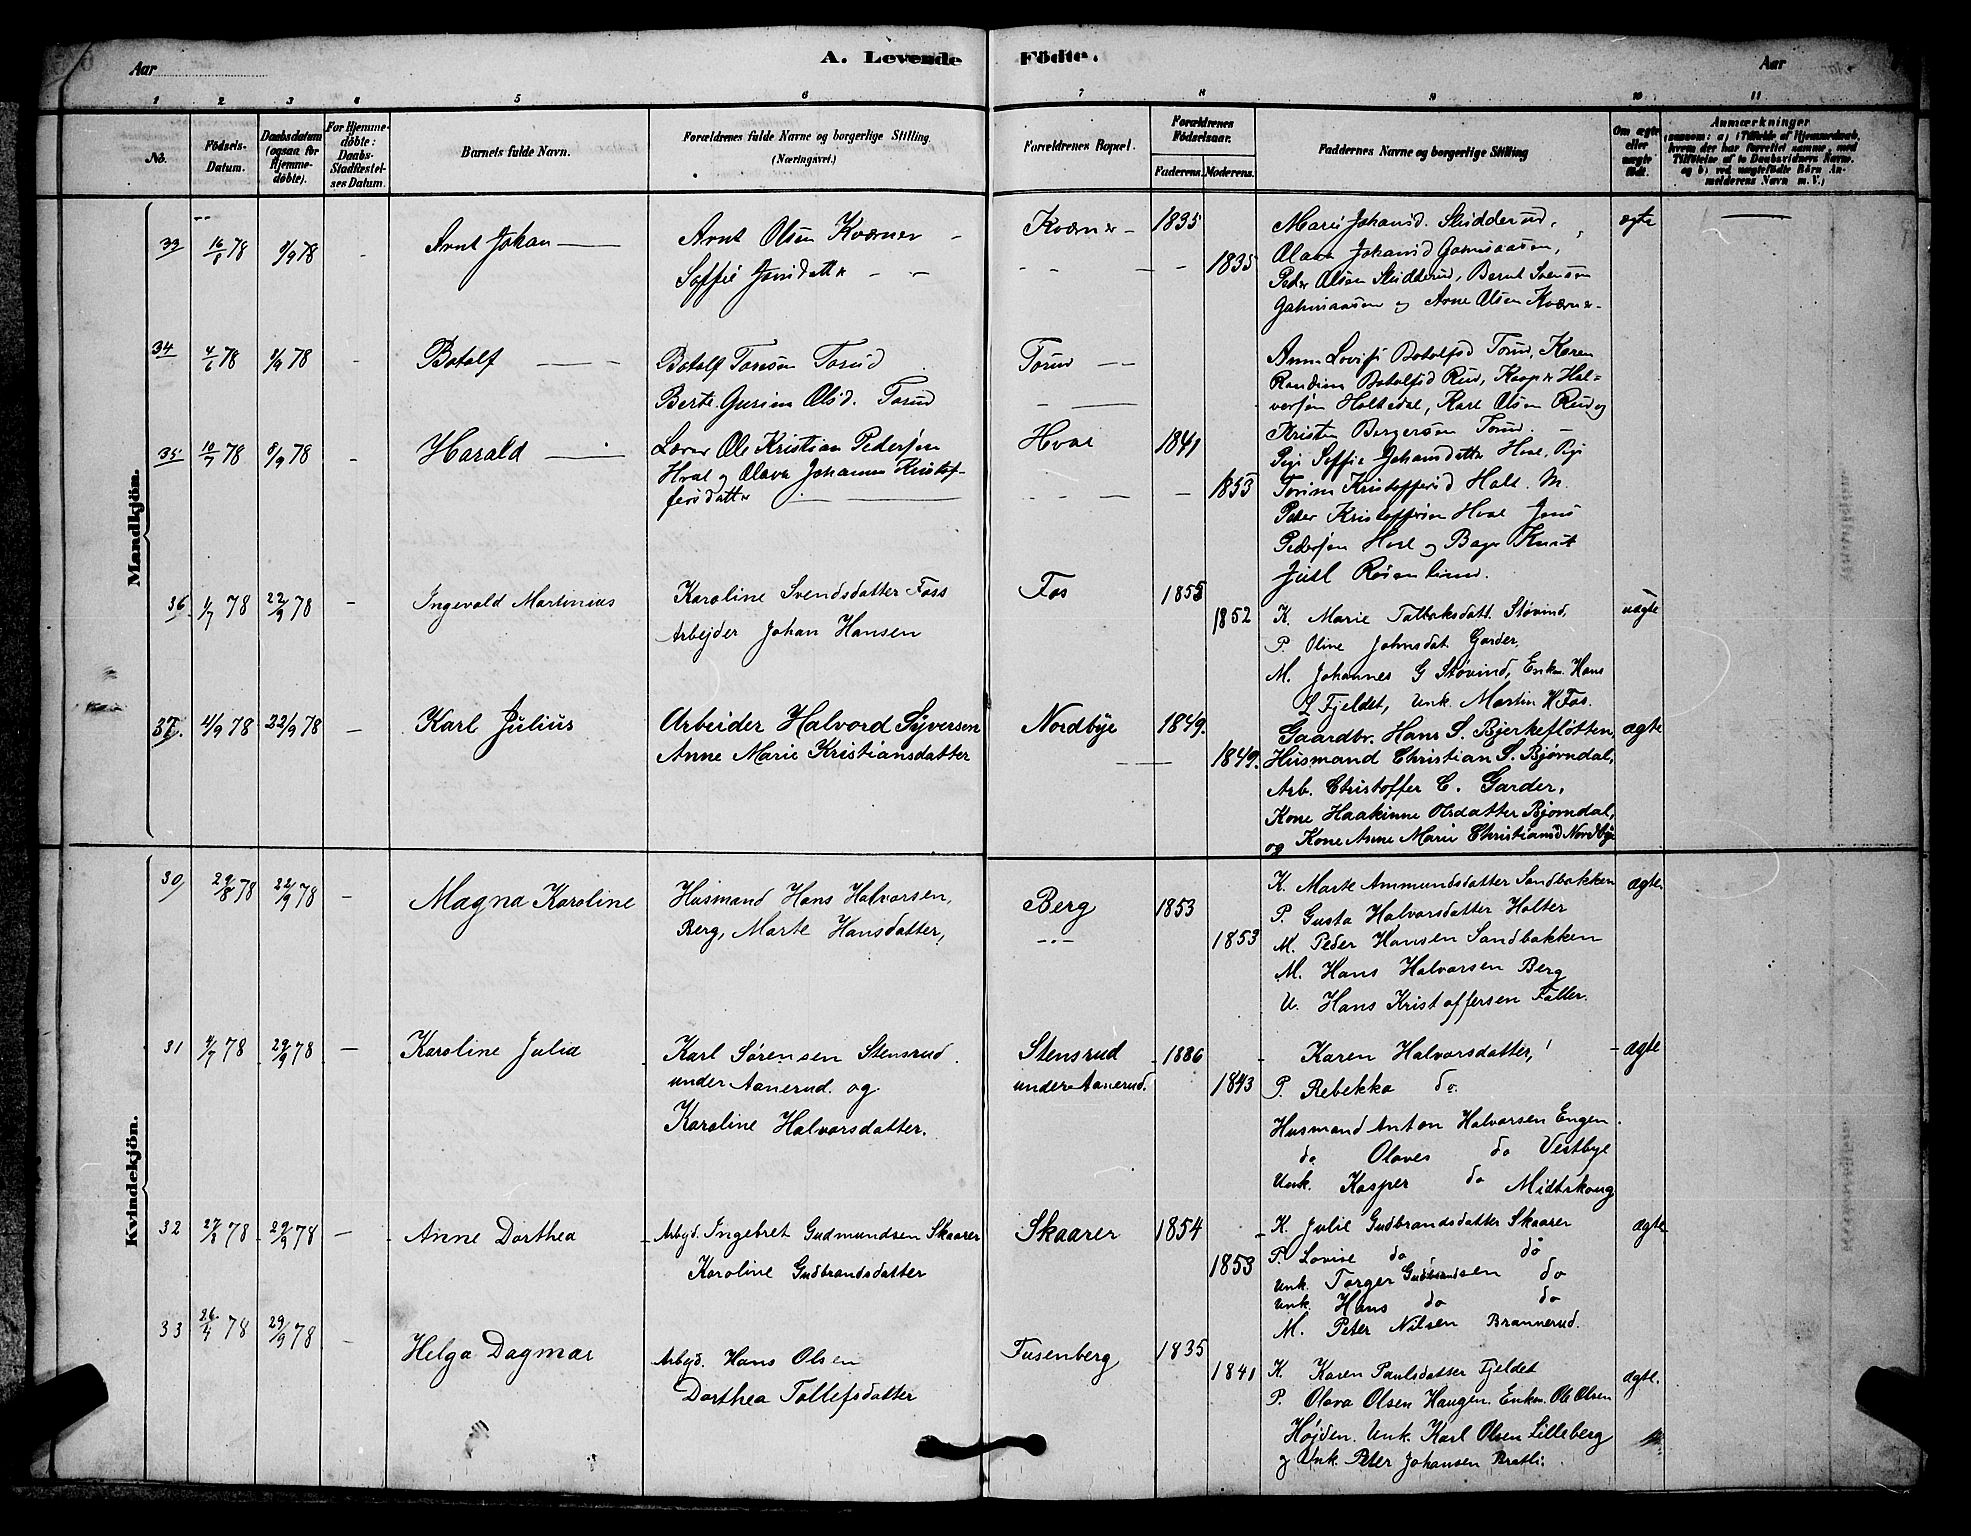 Aar
A. Levende Födte.
Aar
1 2 3 4 5 6 7 8 9 10 11
No.
Födsels-Datum.
Daabsdatum (ogsaa for Hjemme-döbte).
For Hjemme-döbte: Daabs-Stadfæstel-ses Datum.
Barnets fulde Navn.
Forældrenes fulde Navne og borgerlige Stilling.
(Næringsvei.)
Forældrenes Bopæl.
Forældrenes Fødselsaar.
Faderens. Moderens.
Faddernes Navne og borgerlige Stilling
Om ægte eller uægte født.
Anmærkninger
Mandkjön.
33 16/6 78 8/9 78 Arnt Johan Arnt Olsen Kværner Kværner 1835 Marie Johansd. Skidderud, ægte
Soffie 1835 Olava Johansd
Peder Olsen Skidderud, Bernt Svensen
og Arne Olsen Kværner
34 4/6 78 8/9 78 - Botolf Botolf Torud Torud Anne Botolfsd Torud, Karen
Berte Gurine Olsd. Torud Botolfsd Rud, Kasper Hal=
versen Holtedal, Karl Olsen Rud og
Kristen Bergersen Torud.
35 10/7 78 8/9 78 - Harald Lærer Ole Kristian Pedersen Hval 1841 Pige Soffie Johansdatter Hval, Pige
Hval og Olava Johanne Kristof-
fersdatter 1853 Kristoffersd Holt. M.
Peder Kristoffersen Hval Jens
Pedersen Hval og
Juel Rosenlund.
36 1/7 78 22/9 78 - Ingevald Martinius Karoline Svendsdatter Foss Fos 1855 uægte
Arbejder Johan Hansen 1852 K. Marie Støvind,
P. Oline Johnsdat Garder,
M. Johannes G Støvind, Enkm. Hans
L Fjeldet, Unk. Martin H Fos.
37. 4/9 78 22/9 78 - Karl Julius Arbeider Halvord Syversen Nordbye 1849. Gaardbr. Hans S. Bjerkefløtten, ægte
Anne Marie Kristiansdatter 1849. Husmand Christian S. Bjørndal,
Arb. Christoffer C. Garder,
Kone Haakinne Olsdatter Bjørndal,
og Kone Anne Marie Christiansd Nordbye
Kvindekjön.
30 29/8 78 22/9 78 - Magna Karoline Husmand Hans Halvorsen, Berg 1853 K. Marte Ammundsdatter Sandbakken ægte
Berg, Marte Hansdatter, 1853 P. Gusta Halvorsdatter Holter
M. Peder Hansen Sandbakken
M. Hans Halvorsen Berg
U. Hans Kristoffersen Faller.
31 9/7 78 29/9 78 - Karoline Julia Karl Sørensen Stensrud. Stensrud 1836 Karen Halvorsdatter, ægte
under Aanerud og under Aanerud. 1843 P. Rebekka do.
Karoline Halvorsdatter. Husmand Anton Halvorsen Engen.
do Olaves do Vestbye
Unk. Kasper do Midtskoug
32 27/8 78 29/9 78 - Anne Dorthea Arbd. Ingebret Gudmundsen Skaarer Skaarer 1854 K. Julie Gudbrandsdatter Skaarer ægte
Karoline Gudbrandsdatter 1853 P. Lovise do do
Unk. Torger Gudbrandsen do
Unk. Hans do do
M. Peter Nilsen Brannerud.
33 26/4 78 29/9 78 - Helga Dagmar Arbd. Hans Olsen Fusenberg 1835
Dorthea Tollefsdatter 1841 K. Karen Paulsdatter Fjeldet ægte.
P. Olava Olsen Haugen. Enkm. Ole Olsen
Højden. Unk. Karl Olsen Lilleberg
og Unk. Peter Johansen Bratli.